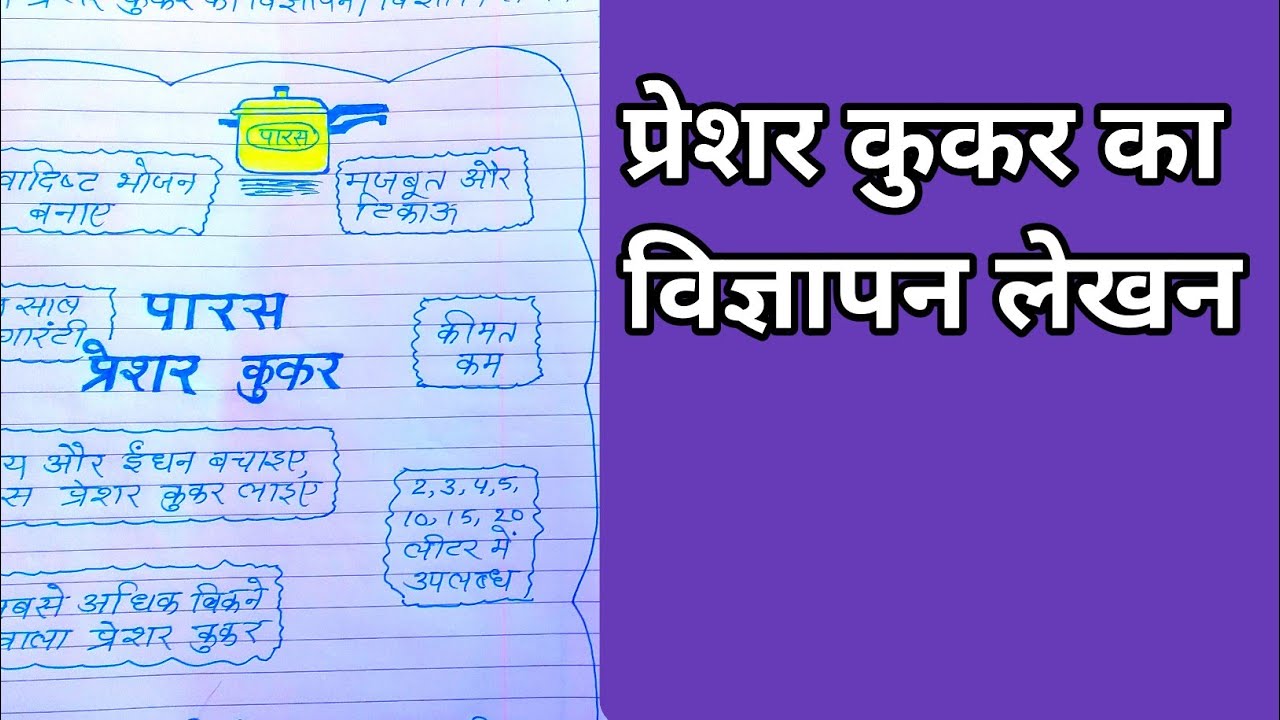 प्रेशर कुकर का विज्ञापन
पारस
वादिष्ट भोजन
बनाए
मजबूत और
टिकाऊ
साल
गारंटी
पारस
प्रेशर कुकर
कीमत
कम
य और ईंधन बचाइए,
स प्रेशर कुकर लाइए
2, 3, 4, 5,
10, 15, 20
लीटर में
उपलब्ध
बसे अधिक बिकने
वाला प्रेशर कुकर
प्रेशर कुकर का
विज्ञापन लेखन